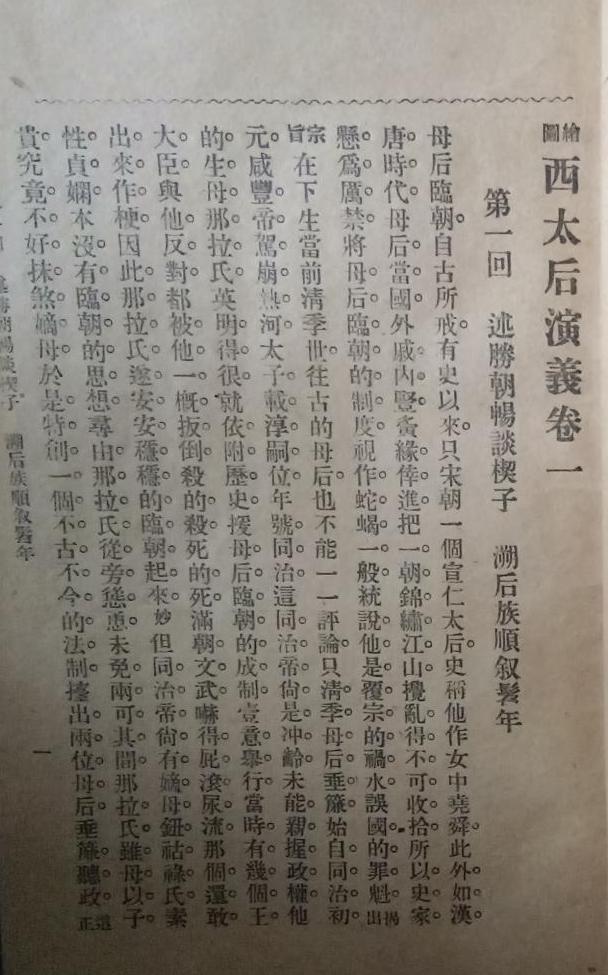 繪圖西太后演義卷一
第一回 述勝朝暢談楔子 溯后族順叙髫年
母后臨朝。自古所戒。有史以來。只宋朝一個宣仁太后。史稱他作女中堯舜。此外如漢
唐時代。母后當國。外戚內豎。夤緣倖進。把一朝錦繡江山。攪亂得不可收拾。所以史家
懸爲厲禁。將母后臨朝的制度。視作蛇蝎一般。統說他是覆宗的禍水。誤國的罪魁。揭出
宗旨在下生當前淸季世。往古的母后。也不能一一評論。只淸季母后垂簾。始自同治初
元。咸豐帝駕崩熱河。太子載淳嗣位。年號同治。這同治帝尙是冲齡。未能親握政權。他
的生母那拉氏。英明得很。就依附歷史。援母后臨朝的成制。壹意舉行。當時有幾個王
大臣與他反對。都被他一概扳倒。殺的殺。死的死。滿朝文武。嚇得屁滾尿流。那個還敢
出來作梗。因此那拉氏遂安安穩穩的臨朝起來。妙但同治帝尙有嫡母鈕祜祿氏。素
性貞嫻。本沒有臨朝的思想。尋由那拉氏從旁慫恿。未免兩可其間。那拉氏雖母以子
貴。究竟不好抹煞嫡母。於是特創一個不古不今的法制。擡出兩位母后。垂簾聽政。這正
溯后族順叙髫年
一